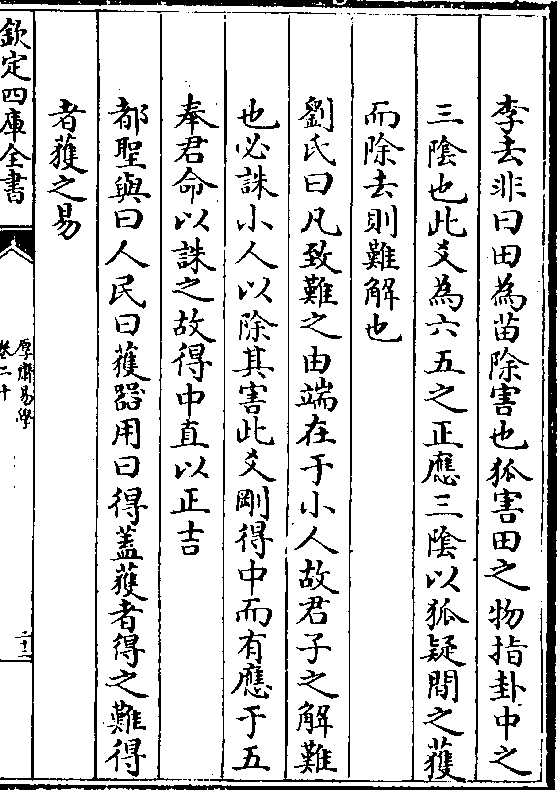 李去非曰田為苗除害也狐害田之物指卦中之
三陰也此爻為六五之正應三陰以狐疑間之獲
而除去則難解也
劉氏曰凡致難之由端在于小人故君子之解難
也必誅小人以除其害此爻剛得中而有應于五
奉君命以誅之故得中直以正吉
都聖與曰人民曰獲器用曰得蓋獲者得之難得
者獲之易
欽定四庫全書
厚齋易學
卷二十
二十二